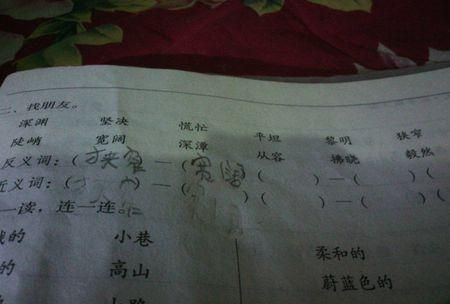 二、找朋友。
深渊 坚决 慌忙 平坦 黎明 狭窄
陡峭 宽阔 深潭 从容 拂晓 毅然
反义词：(狭窄)—(宽阔) ( )—( ) (
近义词：( )—( ) ( )—( ) (
一读，连一连。
的 小巷 柔和的
的 高山 蔚蓝色的